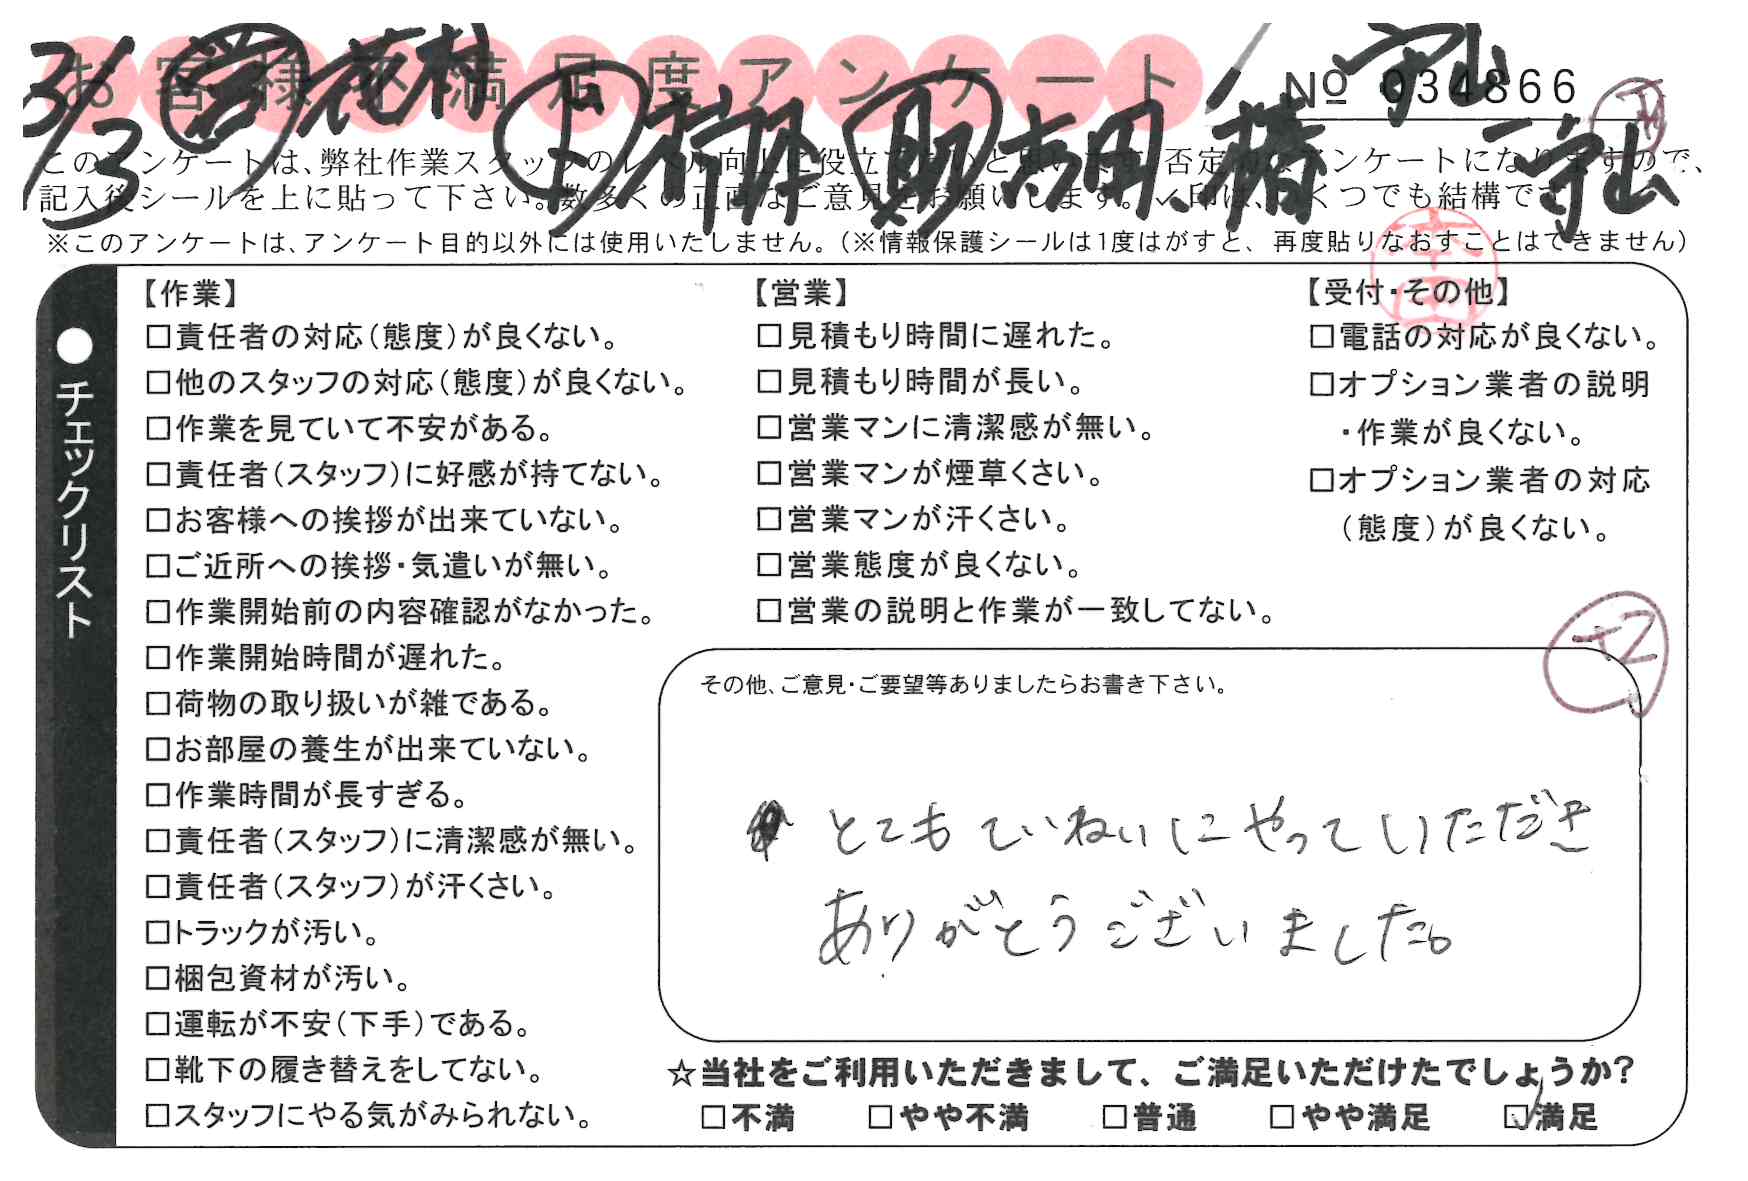 お客様不満足度アンケート
No 034866
3/3 営 花村 ト 村本 助 吉田、椿 守山
一守山
このアンケートは、弊社作業スタッフのレベル向上に役立てたいと思います。否定的なアンケートになりますので、
記入後シールを上に貼って下さい。数多くの正直なご意見をお願いします。✓印は、いくつでも結構です。
※このアンケートは、アンケート目的以外には使用いたしません。(※情報保護シールは1度はがすと、再度貼りなおすことはできません)
●チェックリスト
【作業】
□責任者の対応(態度)が良くない。
□他のスタッフの対応(態度)が良くない。
□作業を見ていて不安がある。
□責任者(スタッフ)に好感が持てない。
□お客様への挨拶が出来ていない。
□ご近所への挨拶・気遣いが無い。
□作業開始前の内容確認がなかった。
□作業開始時間が遅れた。
□荷物の取り扱いが雑である。
□お部屋の養生が出来ていない。
□作業時間が長すぎる。
□責任者(スタッフ)に清潔感が無い。
□責任者(スタッフ)が汗くさい。
□トラックが汚い。
□梱包資材が汚い。
□運転が不安(下手)である。
□靴下の履き替えをしてない。
□スタッフにやる気がみられない。
【営業】
□見積もり時間に遅れた。
□見積もり時間が長い。
□営業マンに清潔感が無い。
□営業マンが煙草くさい。
□営業マンが汗くさい。
□営業態度が良くない。
□営業の説明と作業が一致してない。
【受付・その他】
□電話の対応が良くない。
□オプション業者の説明
・作業が良くない。
□オプション業者の対応
(態度)が良くない。
その他、ご意見・ご要望等ありましたらお書き下さい。
とてもていねいにやっていただき
ありがとうございました。
☆当社をご利用いただきまして、ご満足いただけたでしょうか?
□不満 □やや不満 □普通 □やや満足 ☑満足